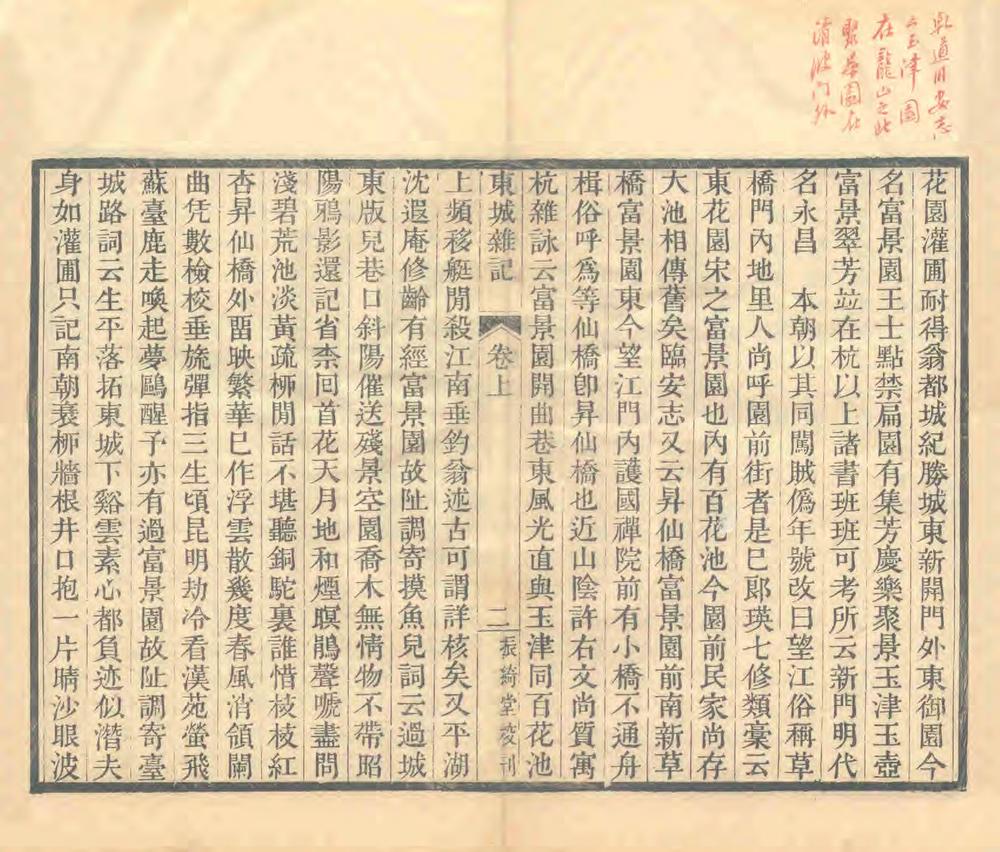 乾道臨安志
云玉津園
在龍山之北
聚景園在
清波門外
花園灌圃耐得翁都城紀勝城東新開門外東御園今
名富景園王士點禁扁園有集芳慶樂聚景玉津玉壺
富景翠芳並在杭以上諸書班班可考所云新門明代
名永昌　本朝以其同闖賊僞年號改曰望江俗稱草
橋門內地里人尚呼園前街者是巳郞瑛七修類稾云
東花園宋之富景園也內有百花池今園前民家尚存
大池相傳舊矣臨安志又云昇仙橋富景園前南新草
橋富景園東今望江門內護國禪院前有小橋不通舟
楫俗呼爲等仙橋卽昇仙橋也近山陰許右文尚質寓
杭雜詠云富景園開曲巷東風光直與玉津同百花池
東城雜記　卷上　二　振綺堂校刊
上頻移艇閒殺江南垂釣翁述古可謂詳核矣又平湖
沈遐庵修齡有經富景園故阯調寄摸魚兒詞云過城
東版兒巷口斜陽催送殘景空園喬木無情物不帶昭
陽鴉影還記省柰囘首花天月地和煙暝鵑聲號盡問
淺碧荒池淡黃疏栁閒話不堪聽銅駝裏誰惜枝枝紅
杏昇仙橋外畱映繁華巳作浮雲散幾度春風消領闌
曲凭數檢校垂旒彈指三生頃昆明劫冷看漢苑螢飛
蘇臺鹿走喚起夢鷗醒予亦有過富景園故阯調寄臺
城路詞云生平落拓東城下谿雲素心都負迹似潛夫
身如灌圃只記南朝衰栁牆根井口抱一片晴沙眼波